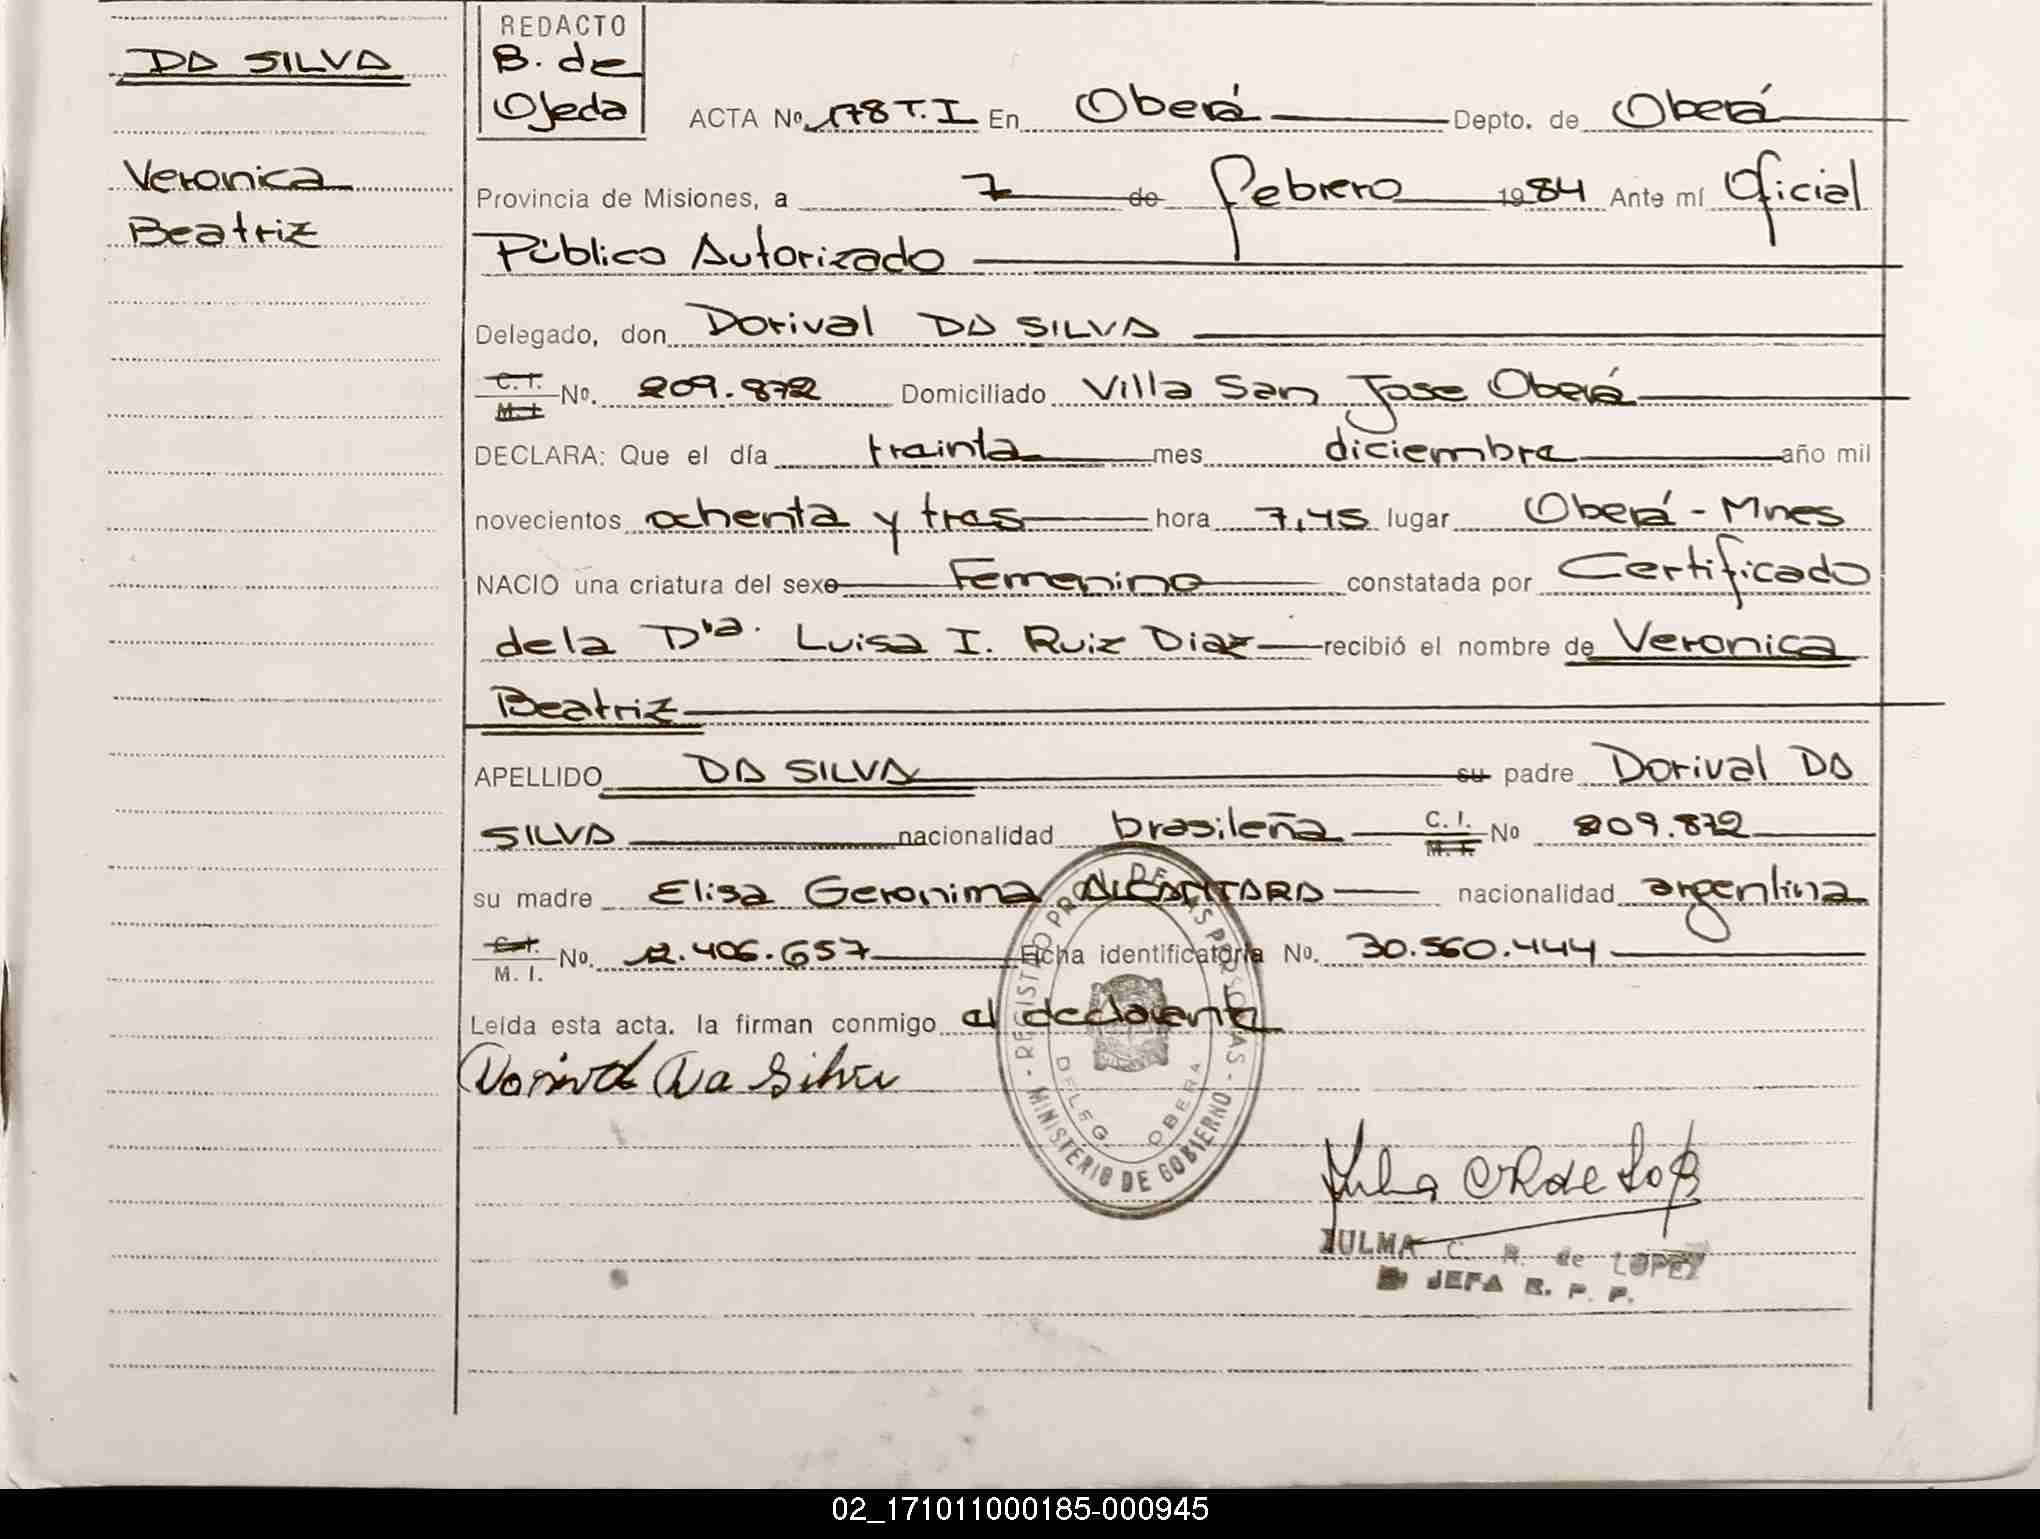 DA SILVA
Veronica
Beatriz
REDACTO
B. de
Ojeda
ACTA Nº 178 T.I En Oberá Depto. de Oberá
Provincia de Misiones, a 7 de febrero 1984 Ante mí Oficial
Público Autorizado
Delegado, don Dorival DA SILVA
C. I.
M. I. No. 209.872 Domiciliado Villa San Jose Oberá
DECLARA: Que el día treinta mes diciembre año mil
novecientos ochenta y tres hora 7,45 lugar Oberá - Mnes
NACIO una criatura del sexo Femenino constatada por Certificado
de la Dra. Luisa I. Ruiz Diaz recibió el nombre de Veronica
Beatriz
APELLIDO DA SILVA su padre Dorival DA
SILVA nacionalidad brasileña C. I.
M. I. No 209.872
su madre Elisa Geronima ALCANTARA nacionalidad argentina
C. I.
M. I. No. 12.406.657 Ficha identificatoria No. 30.560.444
Leída esta acta, la firman conmigo el declarante
Dorival Da Silva
REGISTRO PROV. DE LAS PERSONAS
DELEG. OBERA
MINISTERIO DE GOBIERNO
ZULMA C. R. de LOPEZ
JEFA R. P. P.
02_171011000185-000945